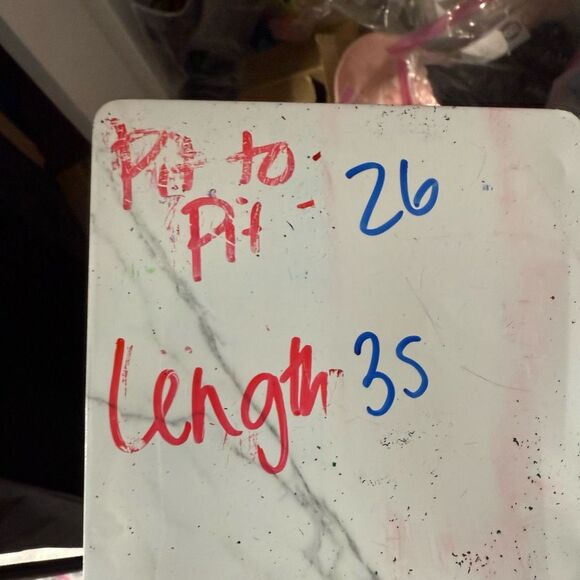 Pit to : 26
Pit -
Length 35